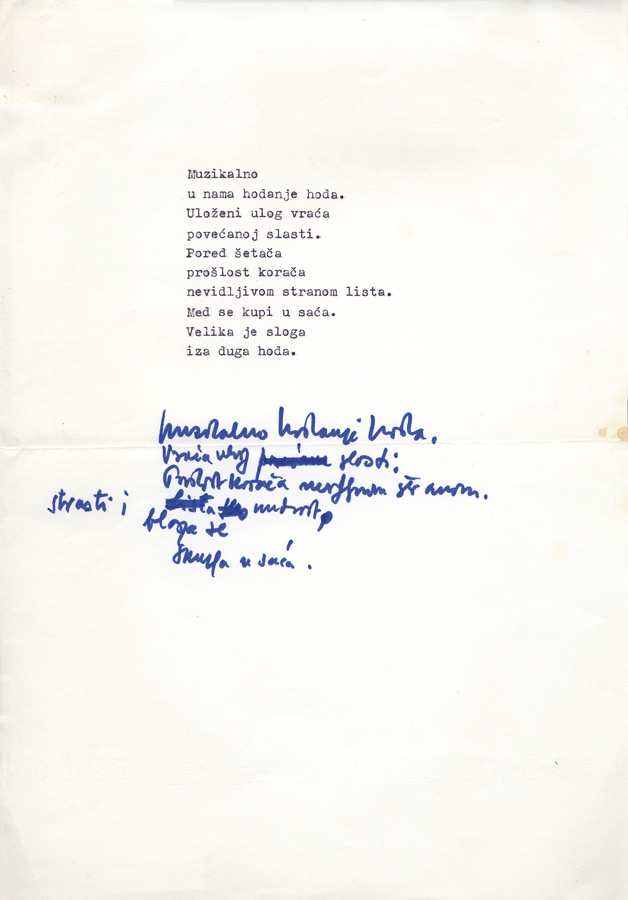 Muzikalno
u nama hodanje hoda.
Uloženi ulog vraća
povećanoj slasti.
Pored šetača
prošlost korača
nevidljivom stranom lista.
Med se kupi u saća.
Velika je sloga
iza duga hoda.
muzikalno hodanje hoda.
Vraća ulog slasti;
Prošlost korača nevidljivom stranom.
strasti i
se
u saća.